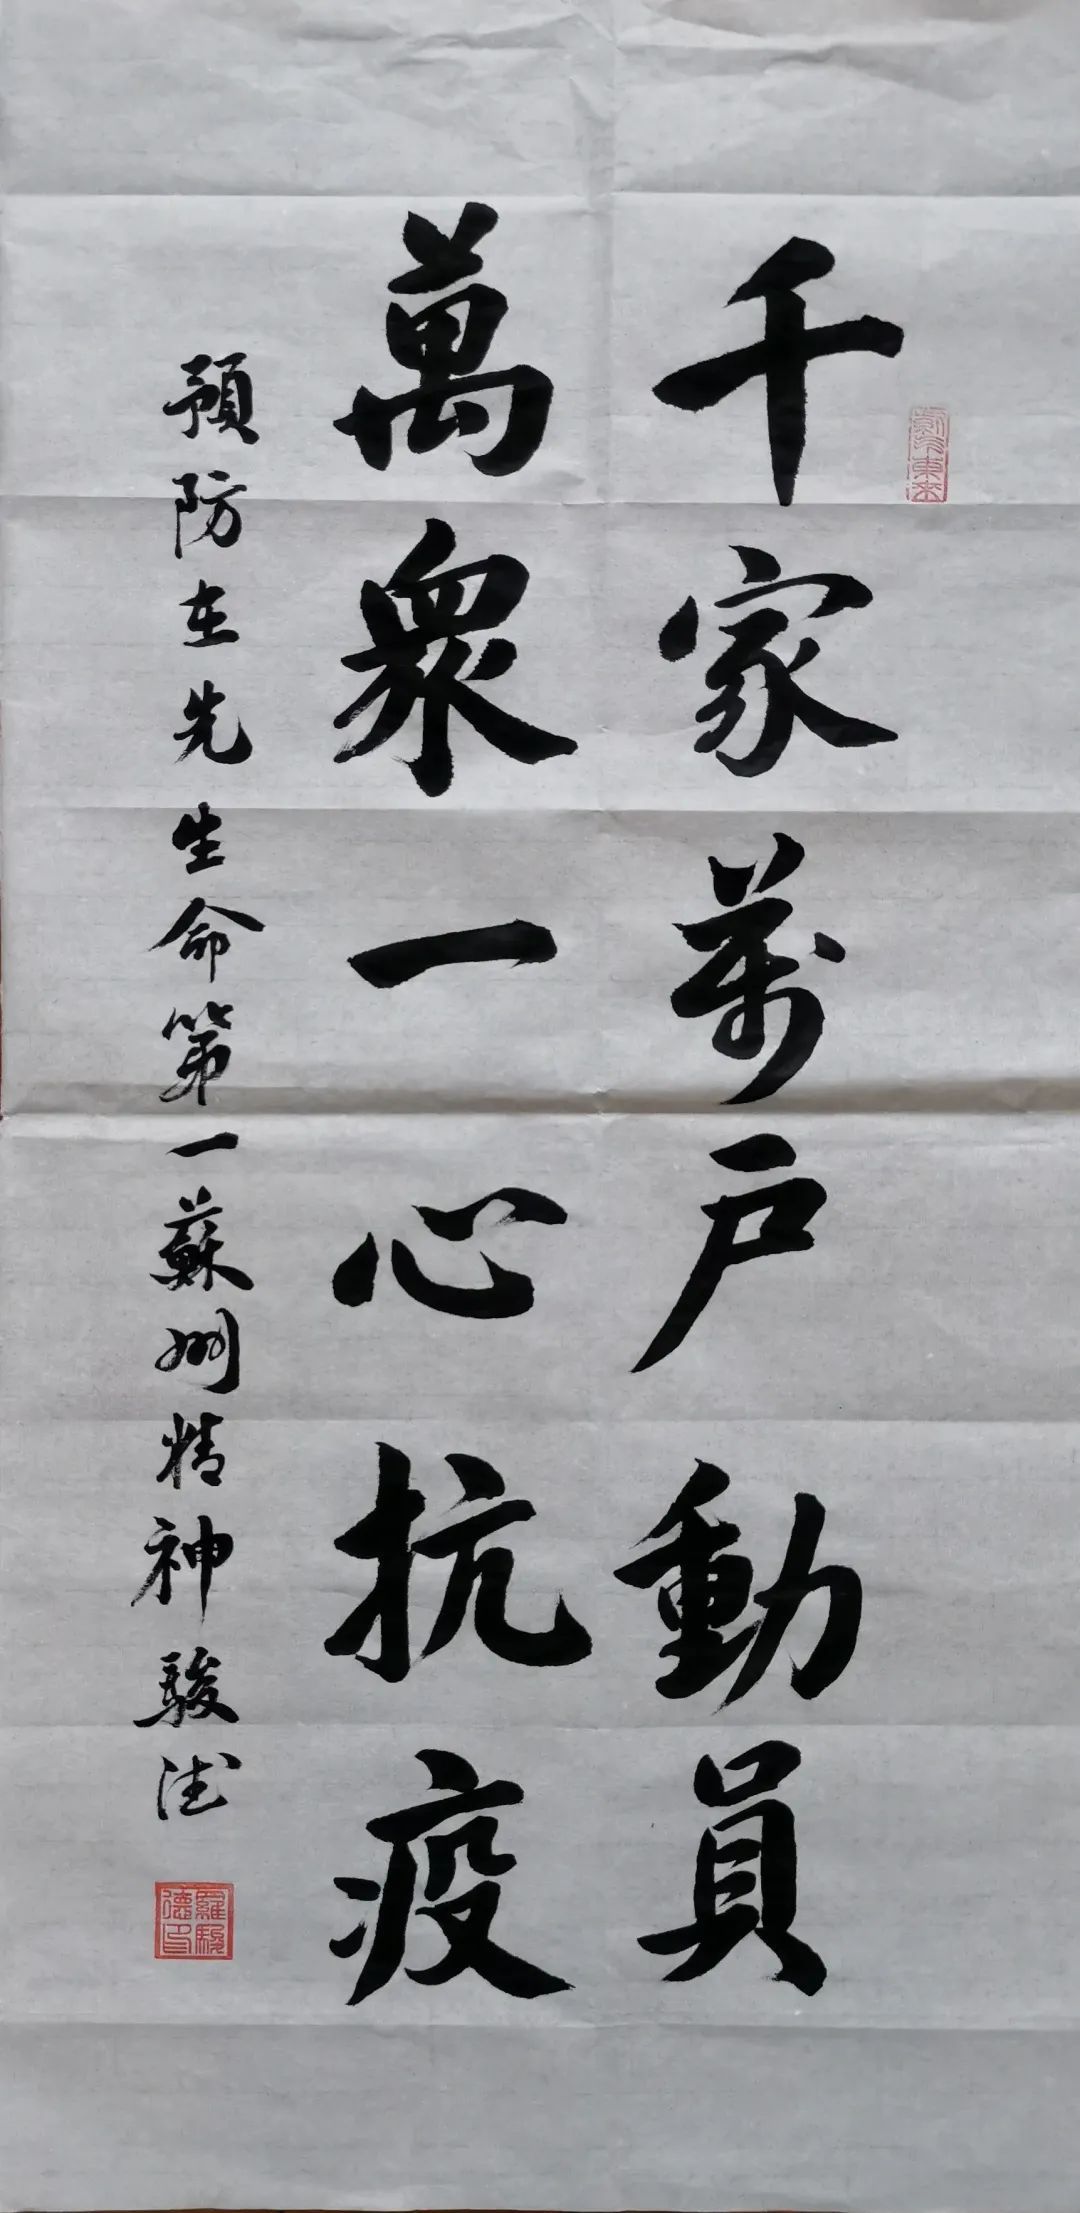 千家萬戶動員
萬眾一心抗疫
預防在先生命第一蘇州精神駿德
羅駿德印